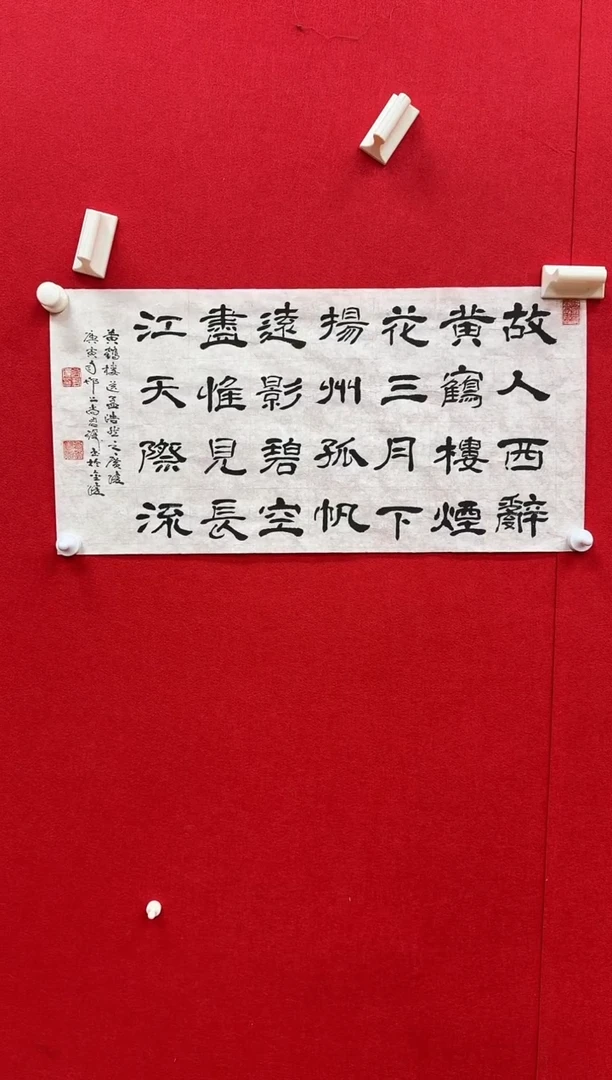 故人西辭
黄鶴樓煙
花三月下
揚州孤帆
遠影碧空
盡惟見長
江天際流
黄鶴樓送孟浩然之廣陵
庚寅 於金陵